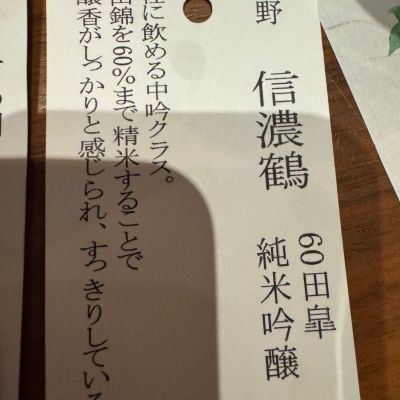 野
信濃鶴
60田皐
純米吟醸
に飲める中吟クラス。
田錦を60%まで精米することで
醸香がしっかりと感じられ、すっきりしている